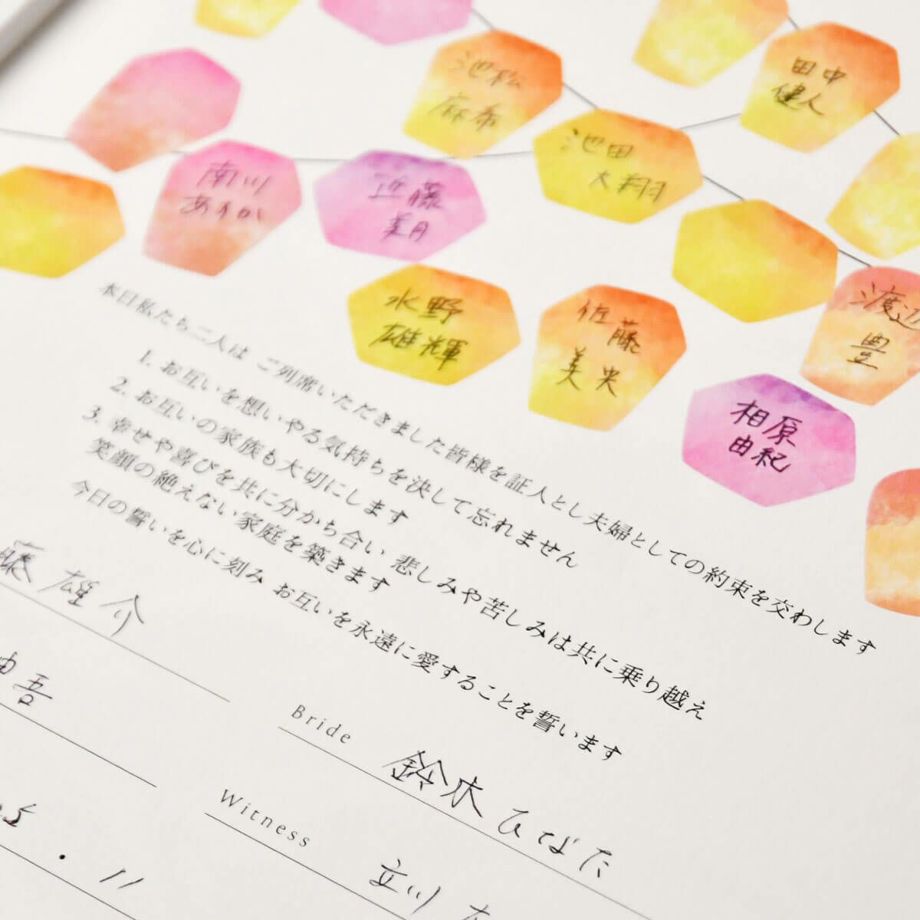 池松
麻希
田中
健人
池田
大翔
南川
あすか
近藤
美月
水野
雄輝
佐藤
美央
渡辺
豊
相原
由紀
本日私たち二人は ご列席いただきました皆様を証人とし夫婦としての約束を交わします
1. お互いを想いやる気持ちを決して忘れません
2. お互いの家族も大切にします
3. 幸せや喜びを共に分かち合い 悲しみや苦しみは共に乗り越え
笑顔の絶えない家庭を築きます
今日の誓いを心に刻み お互いを永遠に愛することを誓います
藤 雄介
吾
. 11
Bride 鈴木 ひなた
Witness 立川